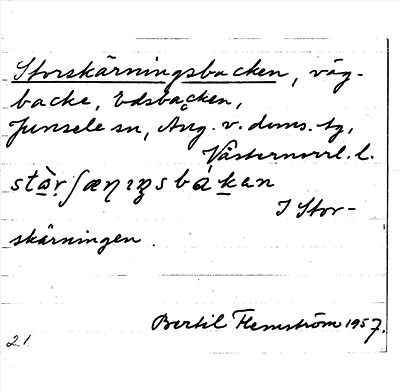 Storskärningsbacken, väg-
backe, Edsbacken,
Junsele sn, Ång. v. doms. tg,
Västernorrl. l.
stàr̥ʃæŋıŋsbákan
I Stor-
skärningen.
Bertil Flemström 1957.
21